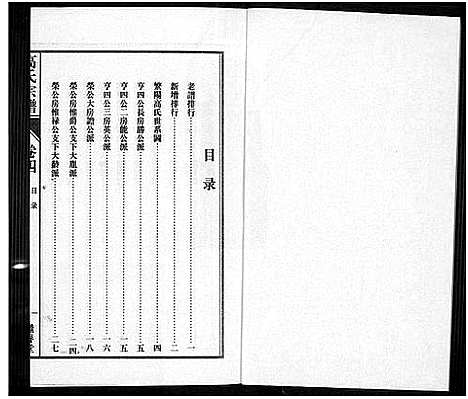 目录
老譜排行……一
新增排行……二
繁陽高氏世系圖……四
亨四公長房勝公派……五
亨四公二房能公派……一五
亨四公三房英公派……一六
榮公大房讀公派……一八
榮公房惟爵公支下大胤派……二四
榮公房惟祿公支下大齡派……二七
高氏宗譜
卷四
目录
一